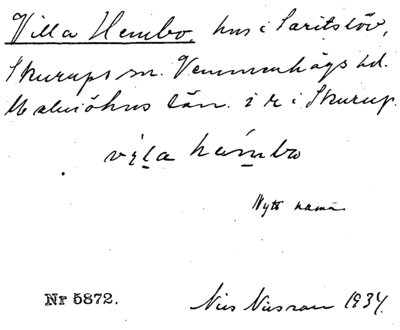 Villa Hembo, hus i Saritslöv,
Skurups sn. Vemmenhögs hd.
Malmöhus län. i r i Skurup.
vila hembo
Nytt namn
Nr 5872. Nils Nilsson 1934.